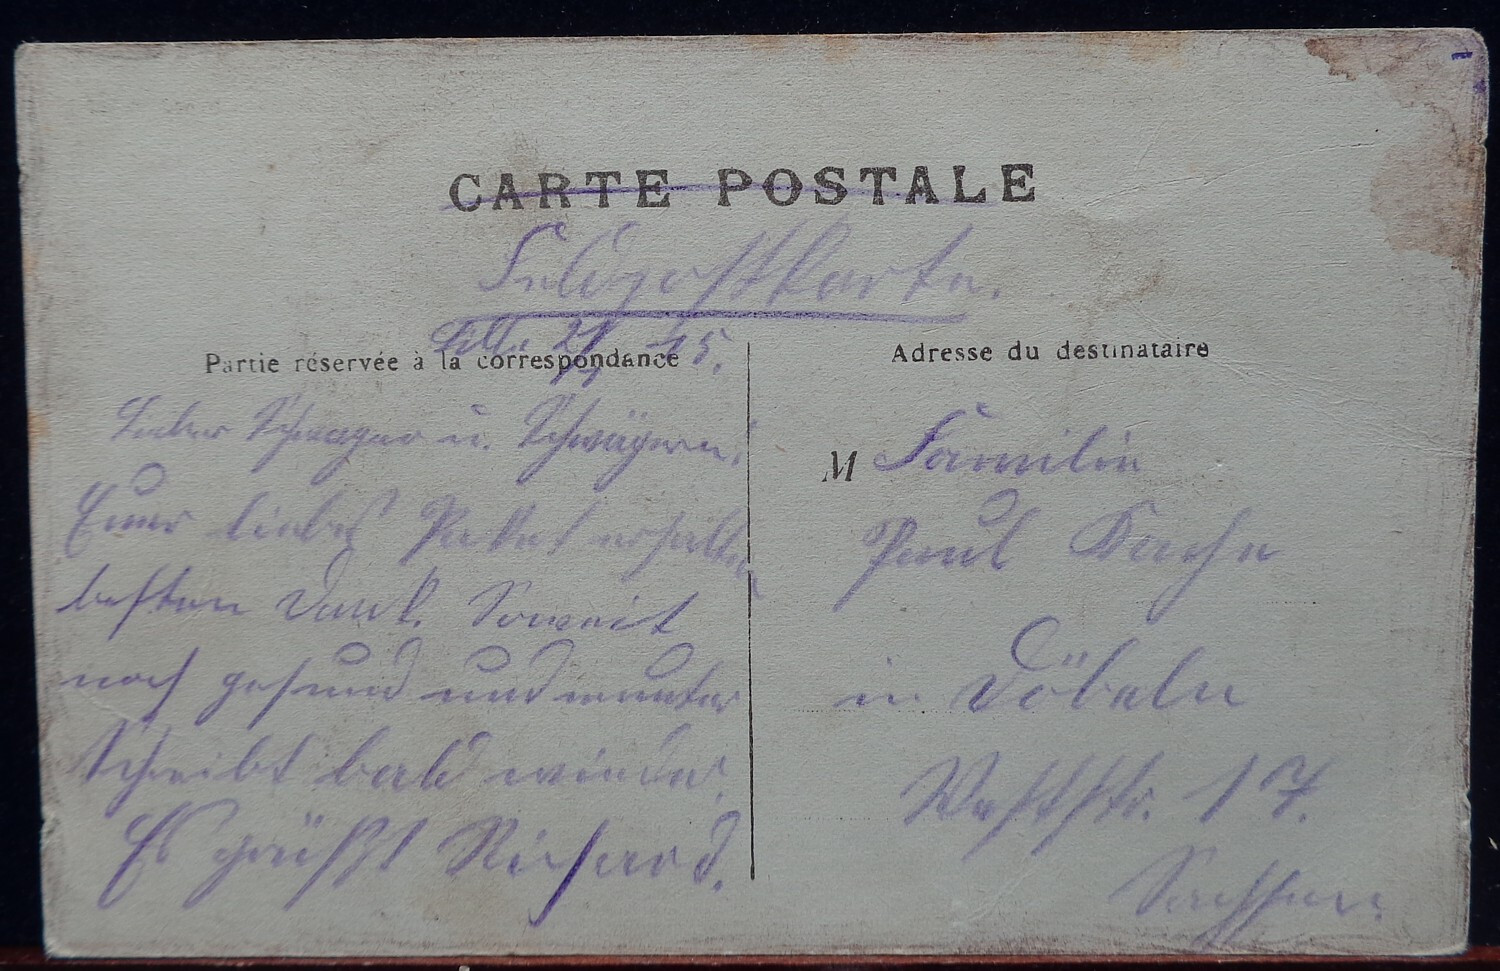 CARTE POSTALE
Feldpostkarte.
15.
Partie réservée à la correspondance
Adresse du destinataire
Lieber Schwager u. Schwägerin!
Euer liebes Paket erhalten
besten Dank. Soweit
noch gesund und munter
Schreibt bald wieder.
Es grüßt Richard.
M Familie
Paul Kache
in Döbeln
Weststr. 17.
Sachsen.